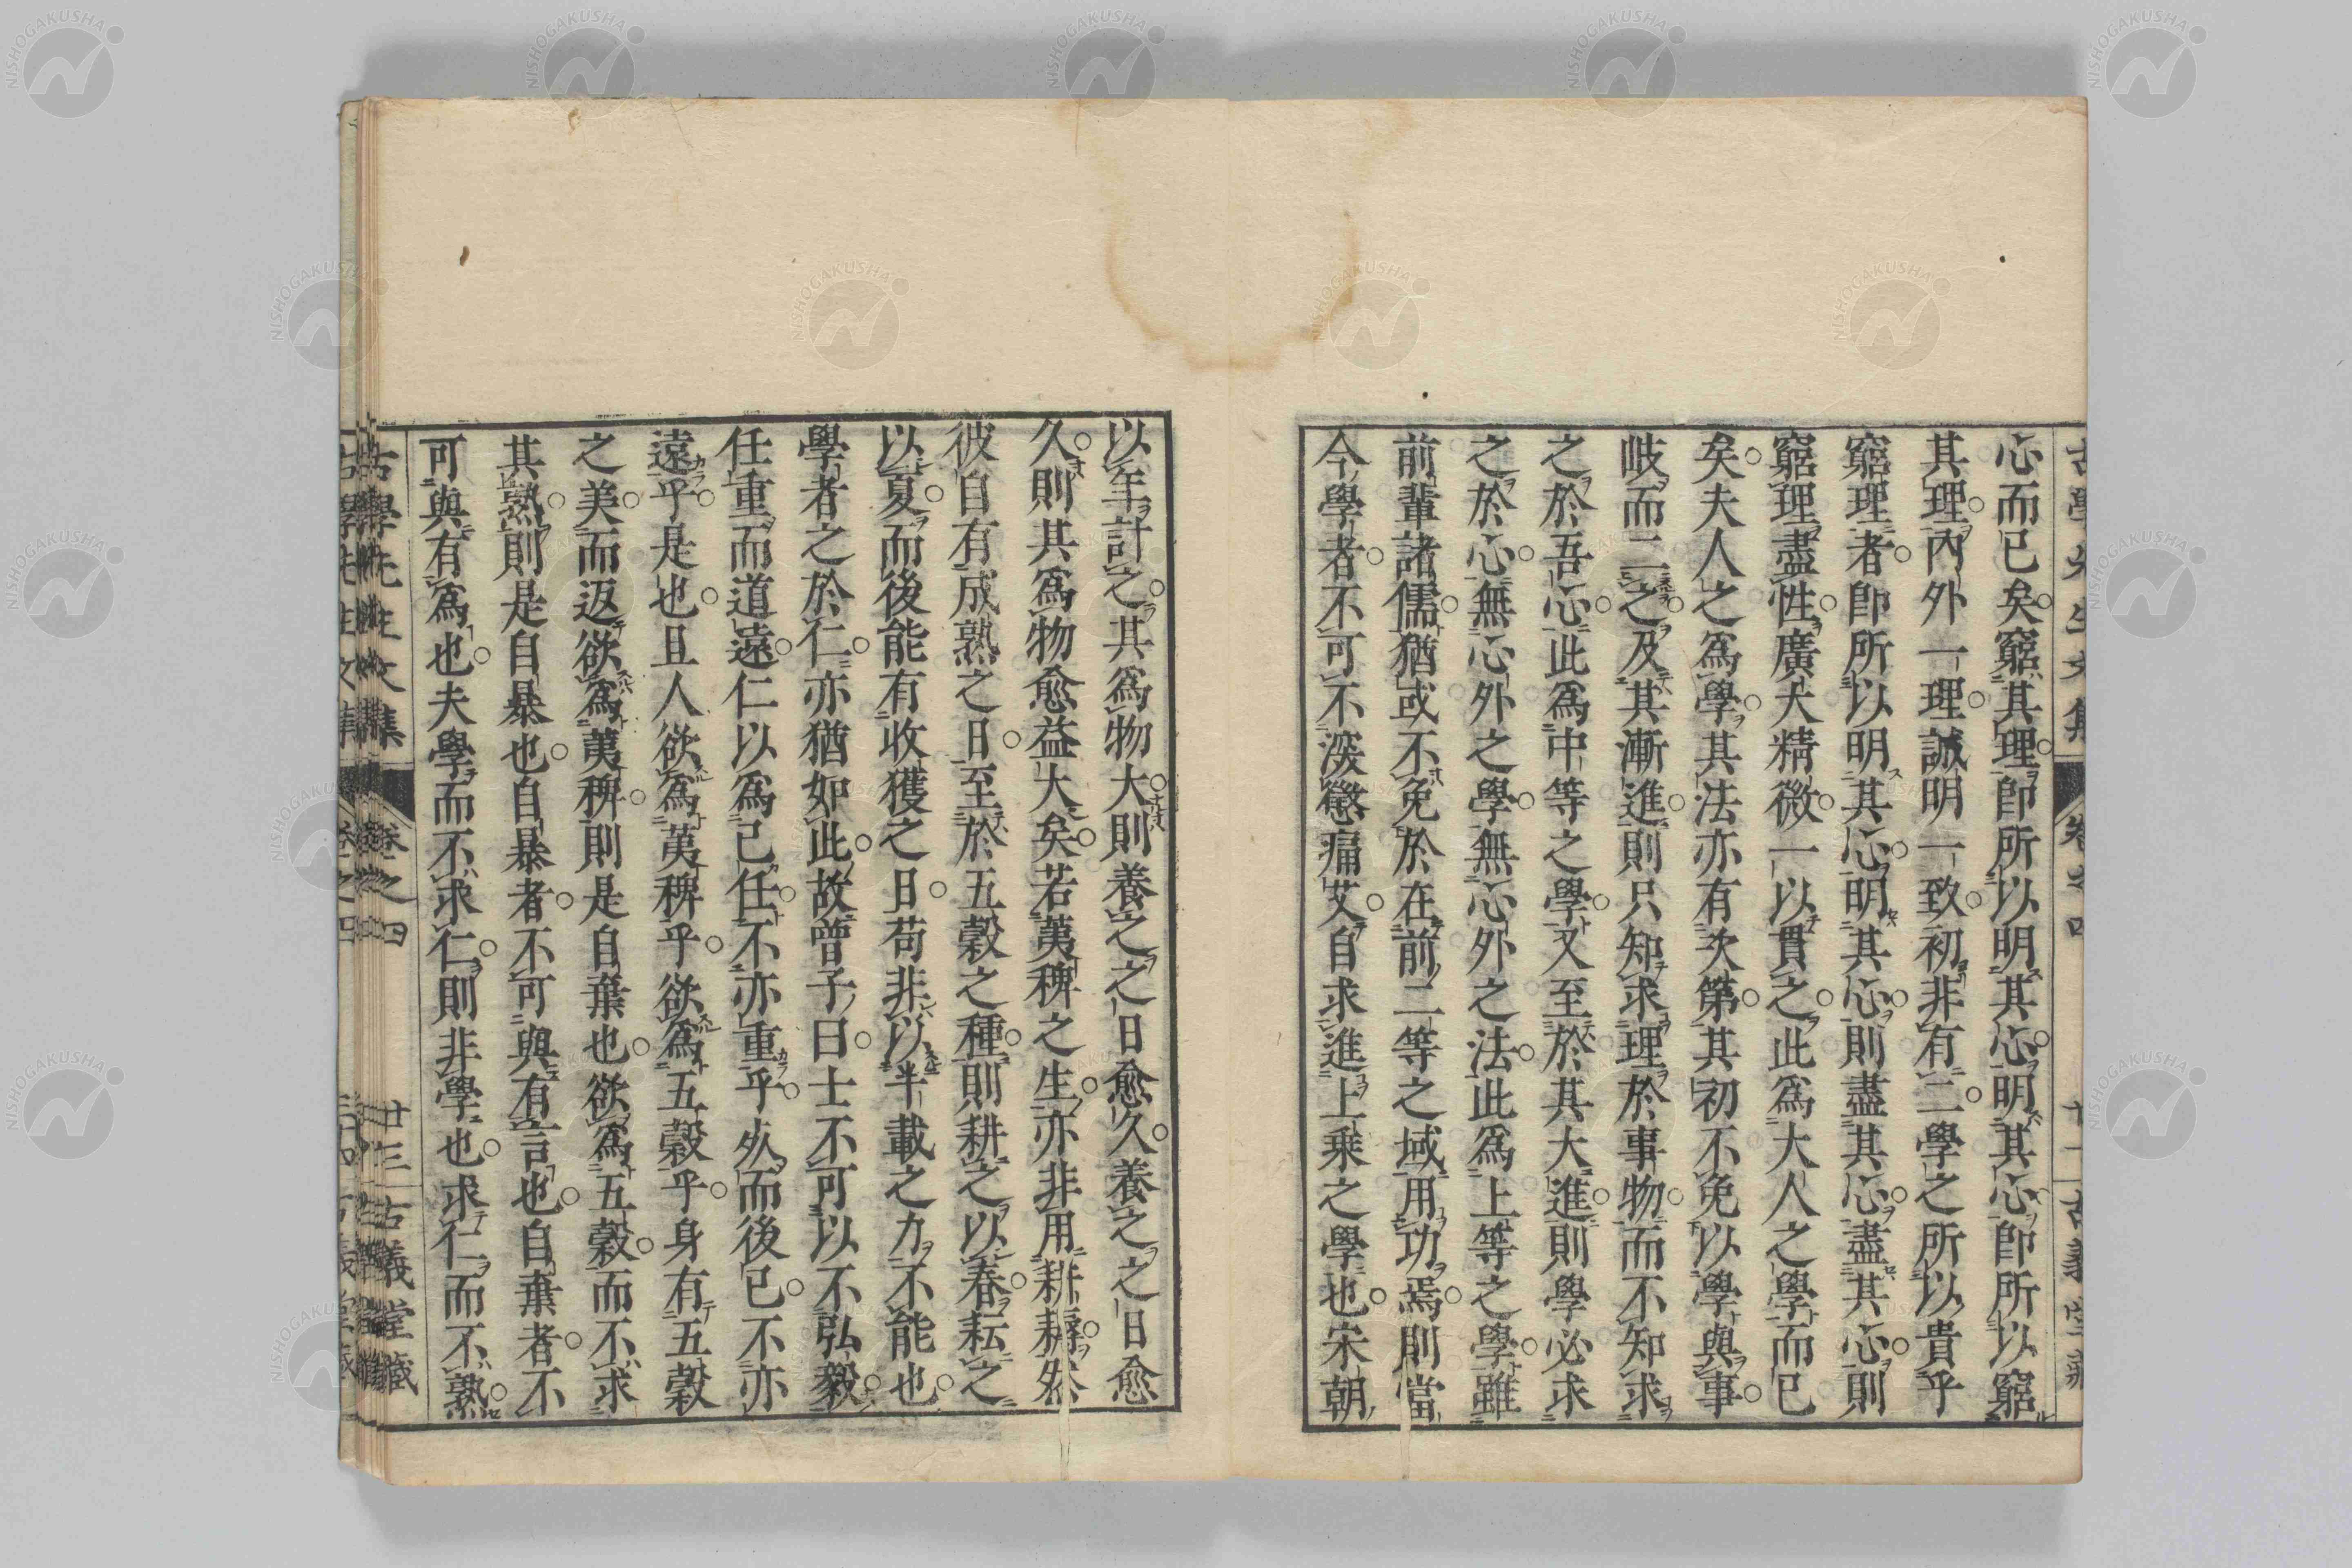 心而已矣窮其理卽所以明其心明其心卽所以窮
其理內外一理誠明一致初非有二學之所以貴乎
窮理者卽所以明其心明其心則盡其心盡其心則
窮理盡性廣大精微一以貫之此爲大人之學而已
矣夫人之爲學其法亦有次第其初不免以學與事
岐而二之及其漸進則只知求理於事物而不知求
之於吾心此爲中等之學又至於其大進則學必求
之於心無心外之學無心外之法此爲上等之學雖
前輩諸儒猶或不免於在前二等之域用功焉則當
今學者不可不深懲痛艾自求進上乘之學也宋朝
以年計之其爲物大則養之之日愈久養之之日愈
久則其爲物愈益大矣若荑稗之生亦非用耕耨然
彼自有成熟之日至於五穀之種則耕之以春耘之
以夏而後能有收獲之日苟非以半載之力不能也
學者之於仁亦猶如此故曾子曰士不可以不弘毅
任重而道遠仁以爲己任不亦重乎死而後已不亦
遠乎是也且人欲爲荑稗乎欲爲五穀乎身有五穀
之美而返欲爲荑稗則是自棄也欲爲五穀而不求
其熟則是自暴也自暴者不可與有言也自棄者不
可與有爲也夫學而不求仁則非學也求仁而不熟
古學先生文集 卷之四 廿三 古義堂藏
NISHOGAKUSHA